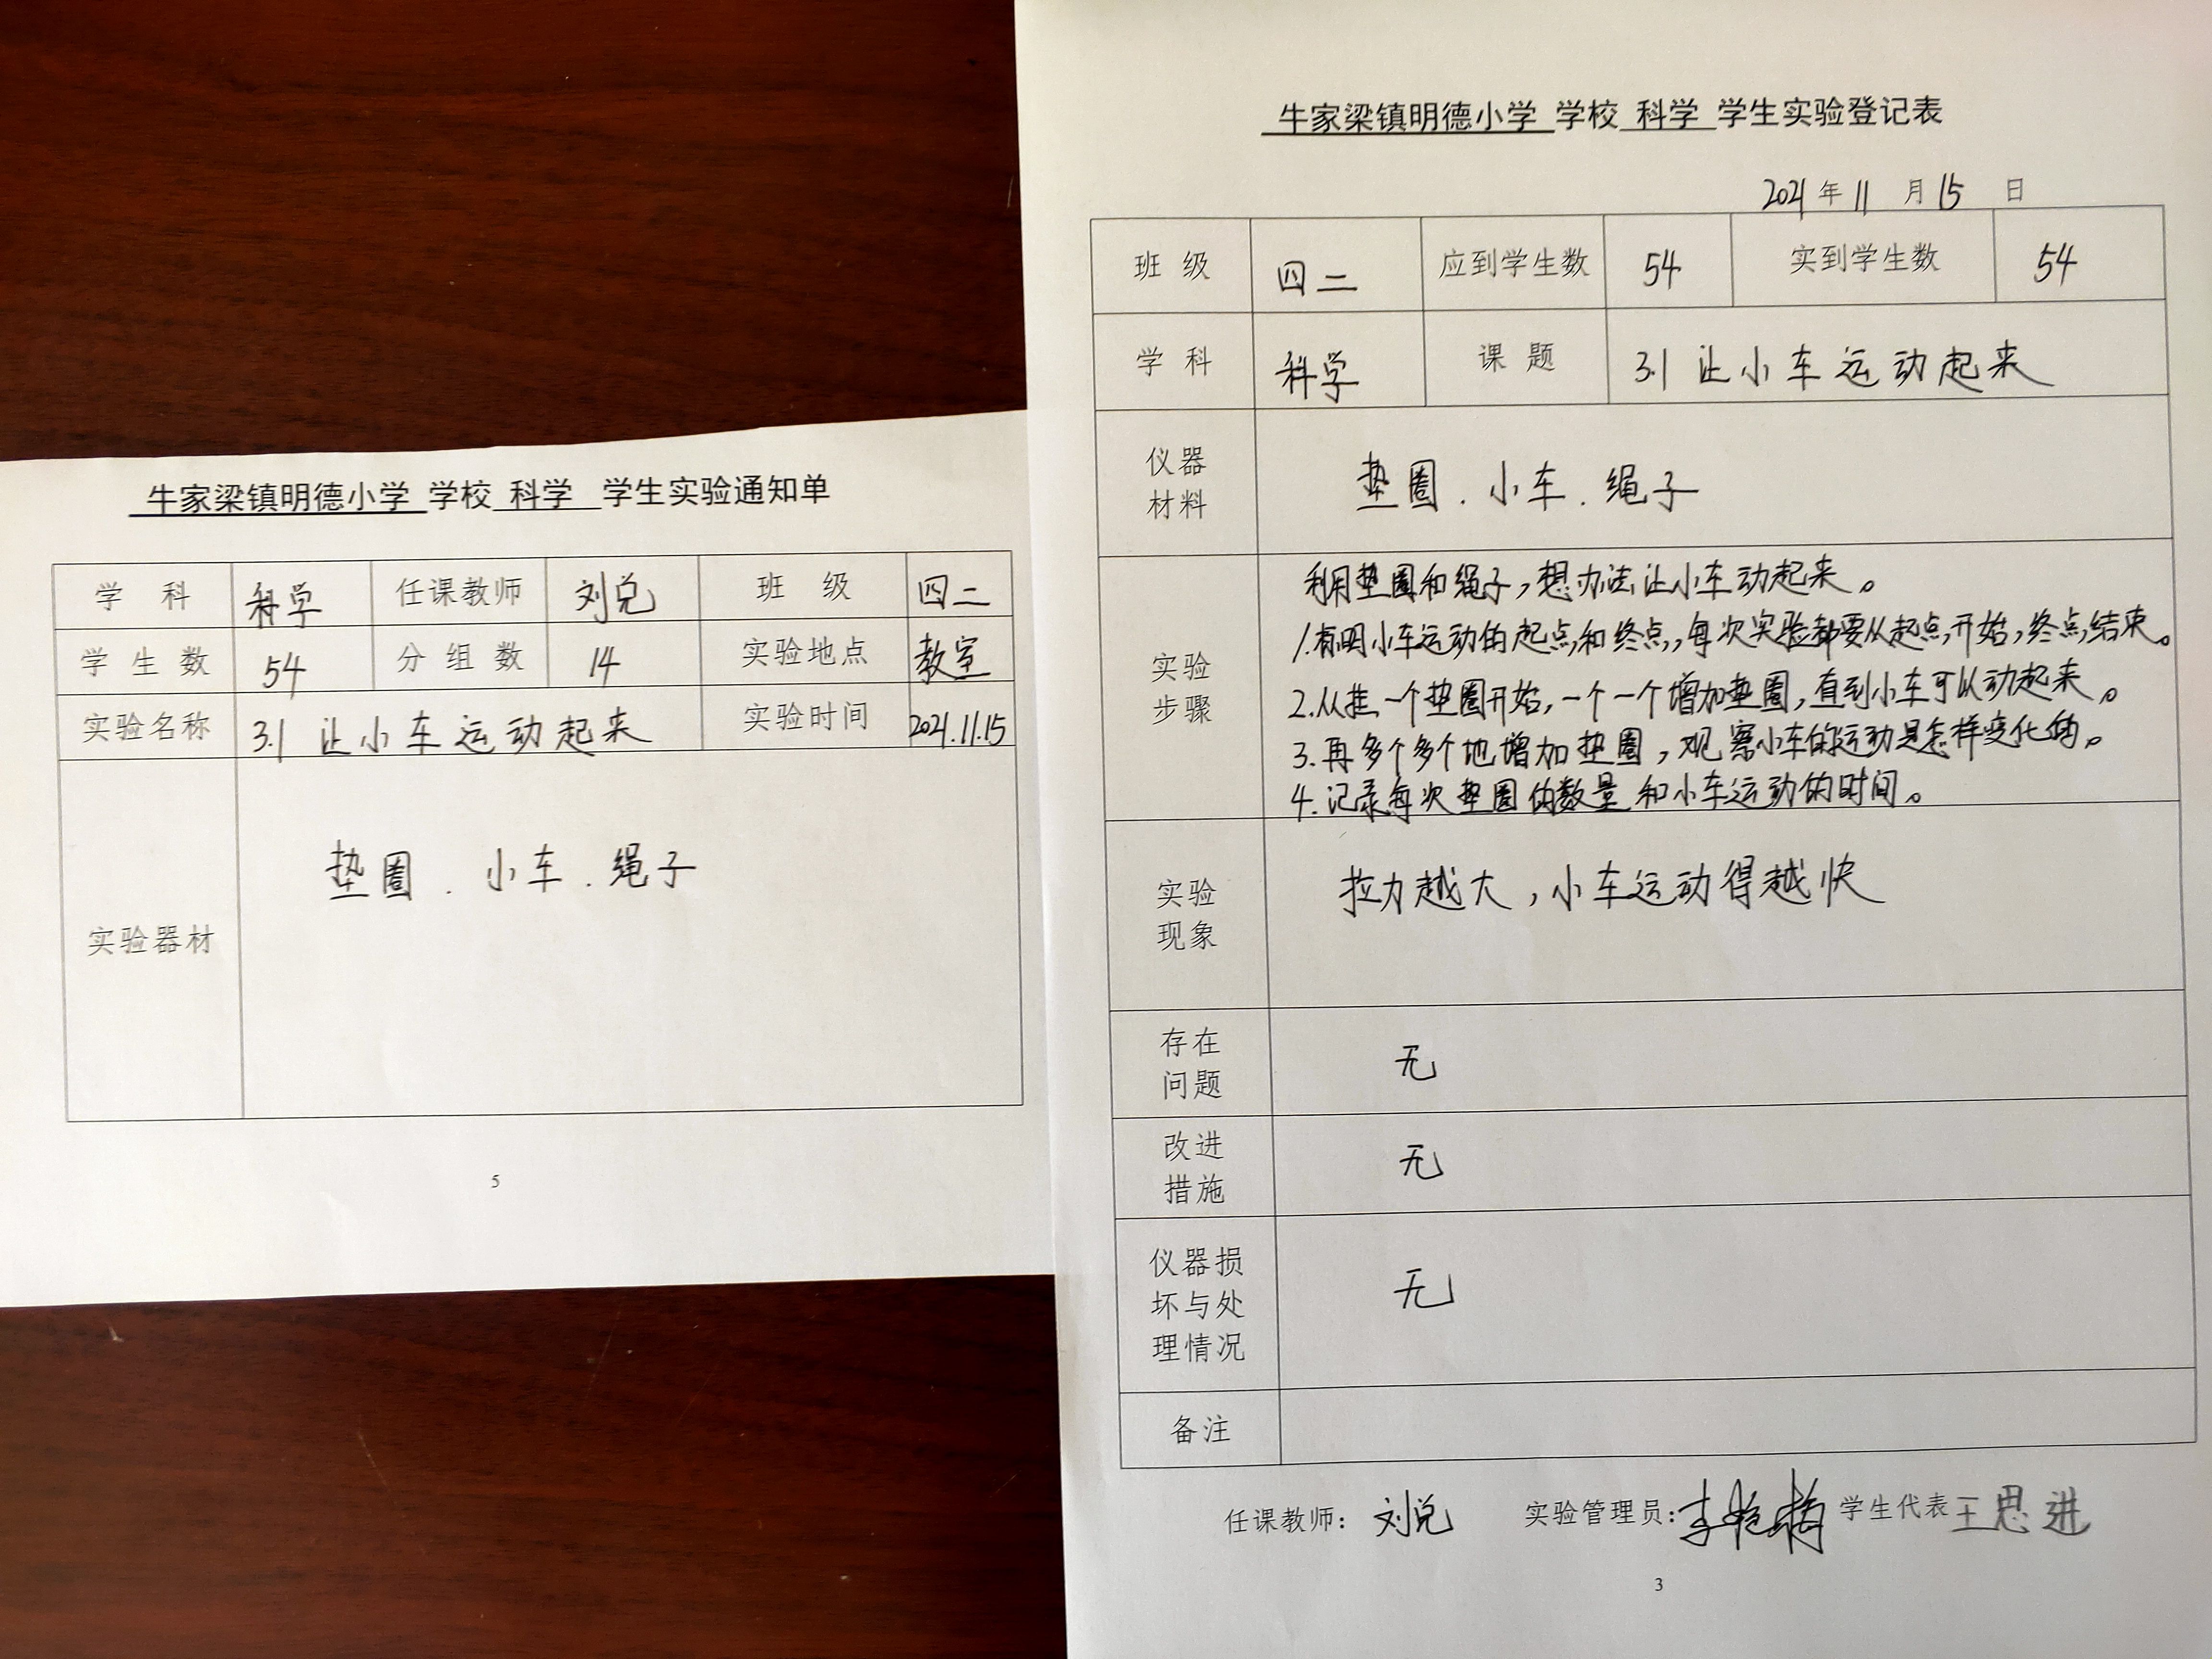 牛家梁镇明德小学 学校 科学 学生实验通知单
学 科 科学 任课教师 刘兑 班 级 四二
学 生 数 54 分 组 数 14 实验地点 教室
实验名称 3.1 让小车运动起来 实验时间 2021.11.15
实验器材 垫圈.小车.绳子
5
牛家梁镇明德小学 学校 科学 学生实验登记表
2021年11月15日
班 级 四二 应到学生数 54 实到学生数 54
学 科 科学 课 题 3.1 让小车运动起来
仪器
材料
垫圈.小车.绳子
实验
步骤
利用垫圈和绳子,想办法让小车动起来。
1.标明小车运动的起点和终点,每次实验都要从起点开始,终点结束。
2.从挂一个垫圈开始,一个一个增加垫圈,直到小车可以动起来。
3.再多个多个地增加垫圈,观察小车的运动是怎样变化的。
4.记录每次垫圈的数量和小车运动的时间。
实验
现象
拉力越大,小车运动得越快
存在
问题
无
改进
措施
无
仪器损
坏与处
理情况
无
备注
任课教师:刘兑 实验管理员: 学生代表王思进
3